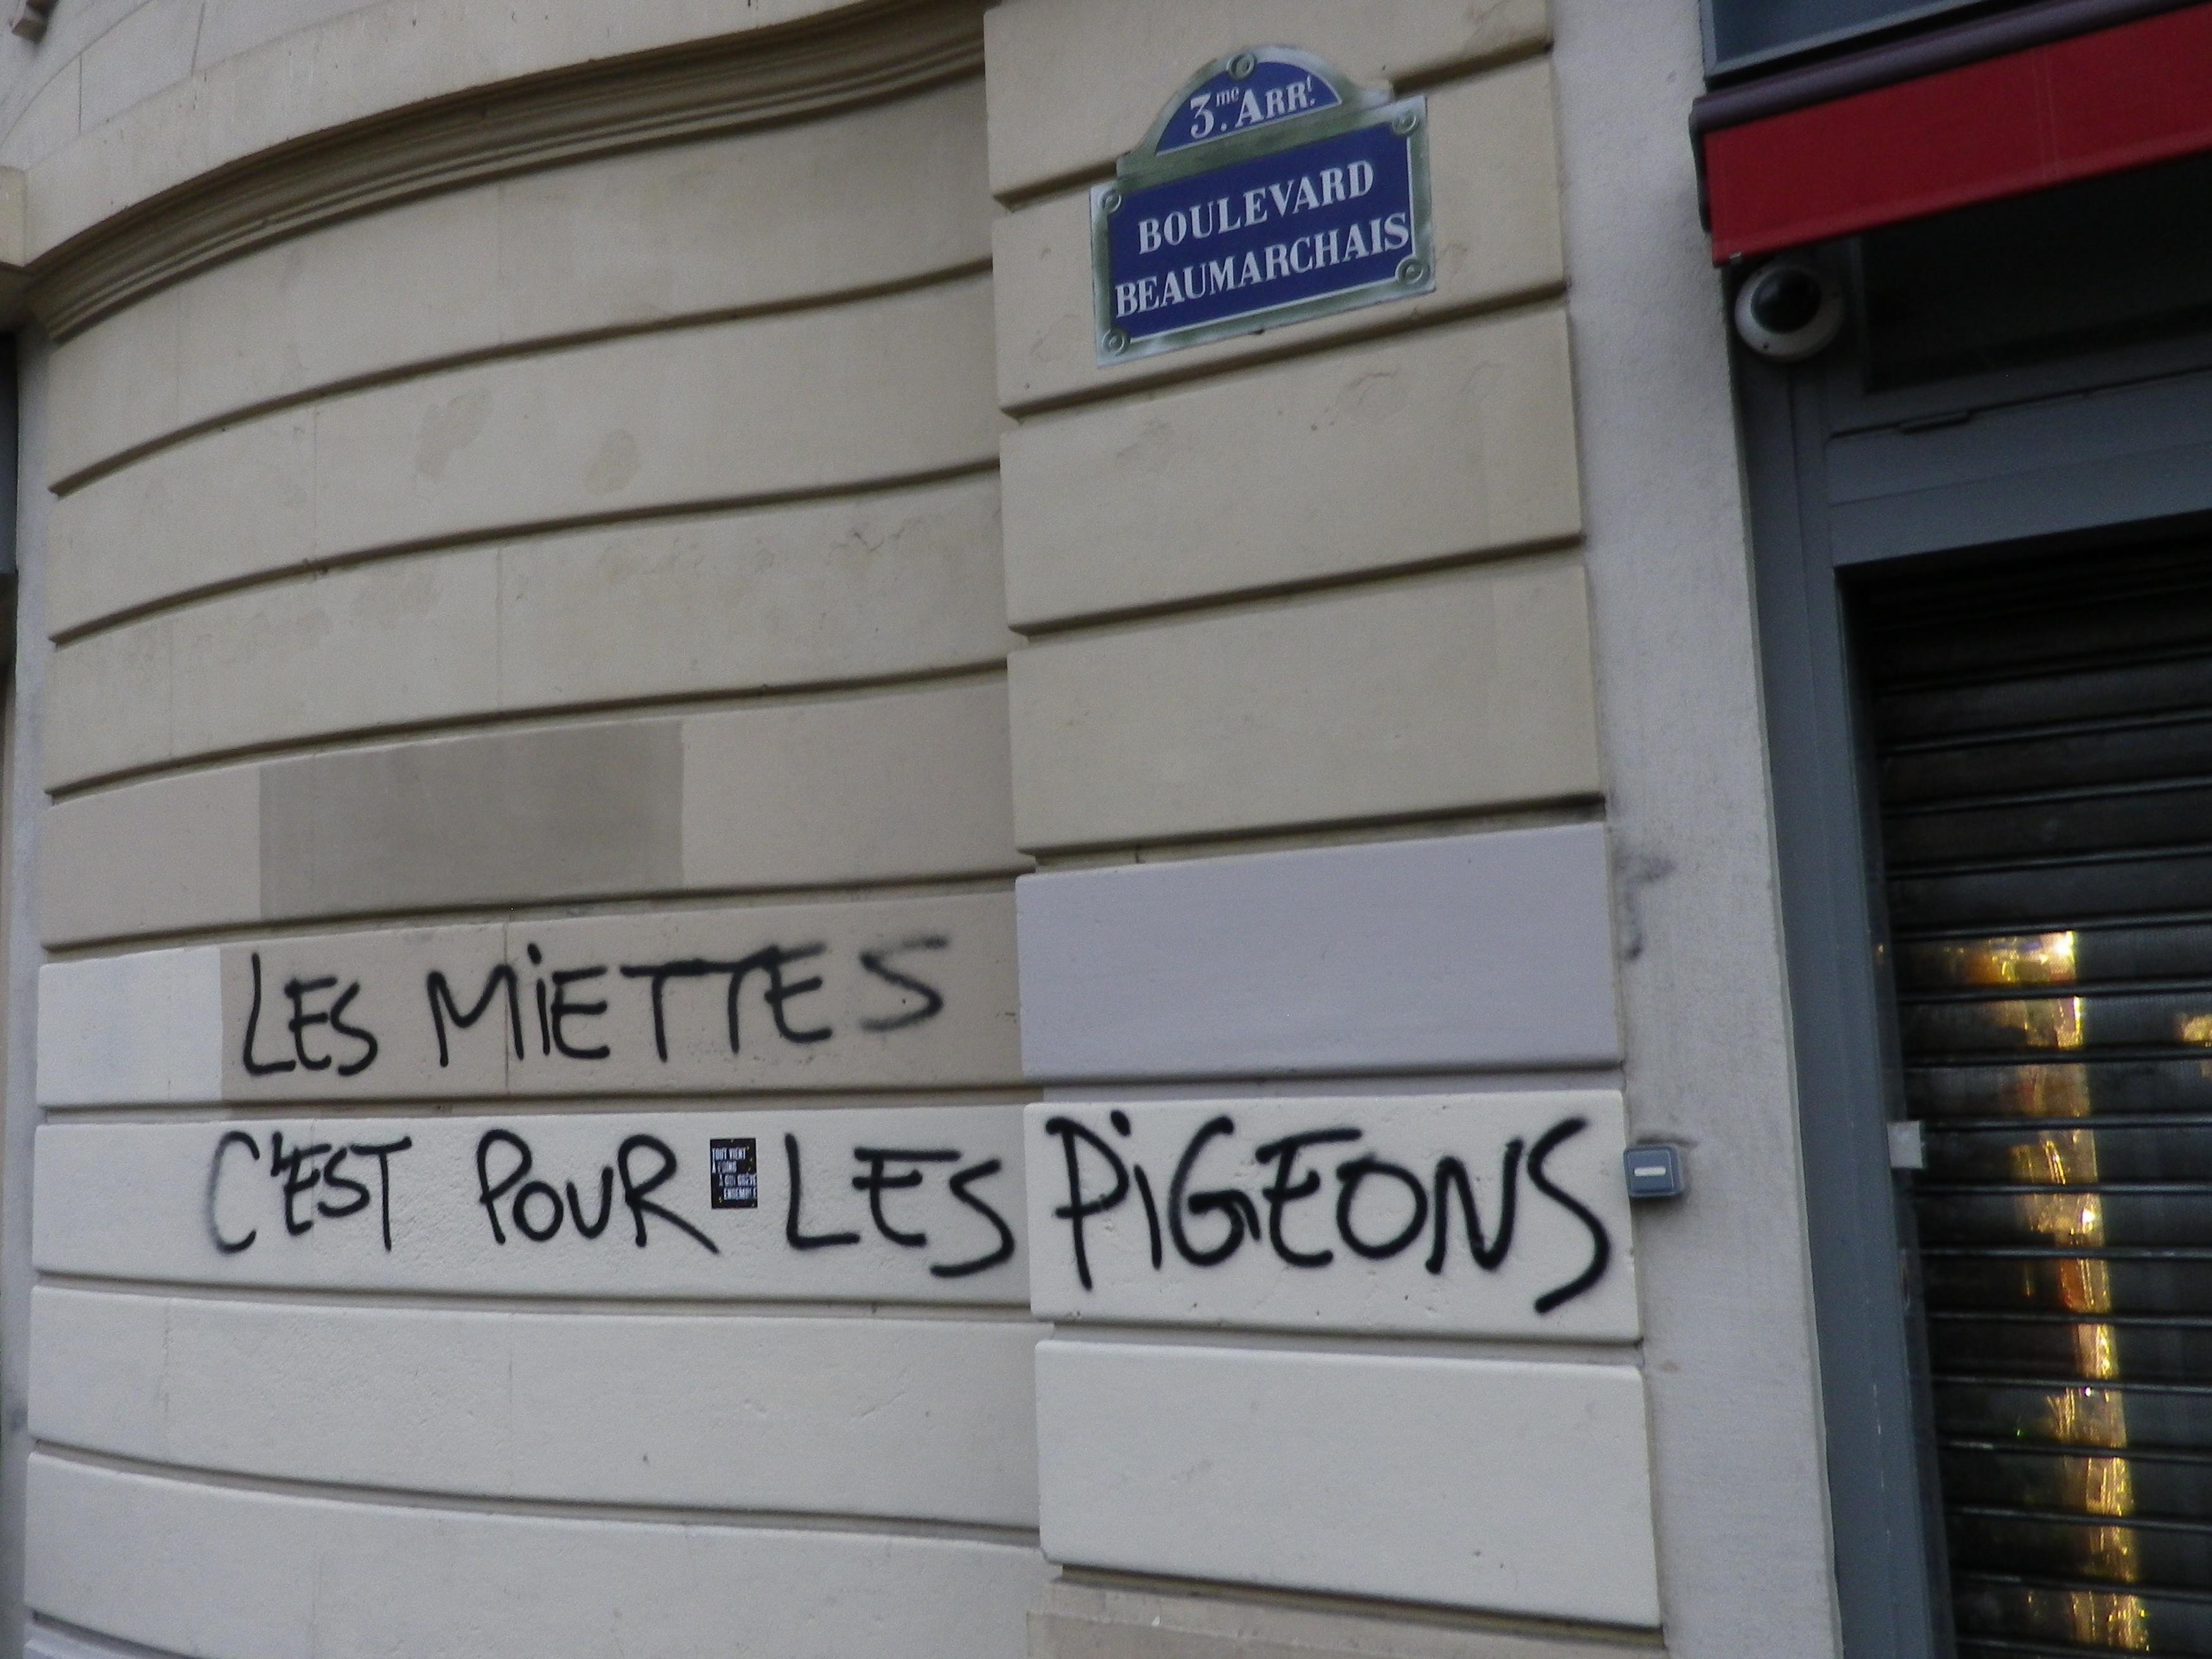 3.me ARRt.
BOULEVARD
BEAUMARCHAIS
LES MiETTES
C'EST POUR LES PiGEONS
TOUT VIENT
À POING
À QUI GRÈVE
ENSEMBLE